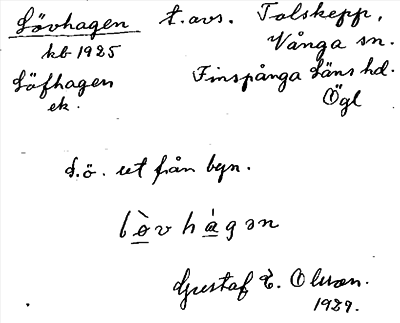 Lövhagen t. avs. Tolskepp,
kb 1925 Vånga sn.
Löfhagen Finspånga Läns hd.
ek. Ögl
S.ö. ut från byn.
lò̱vhá̱gən
Gustaf E. Olsson.
1929.